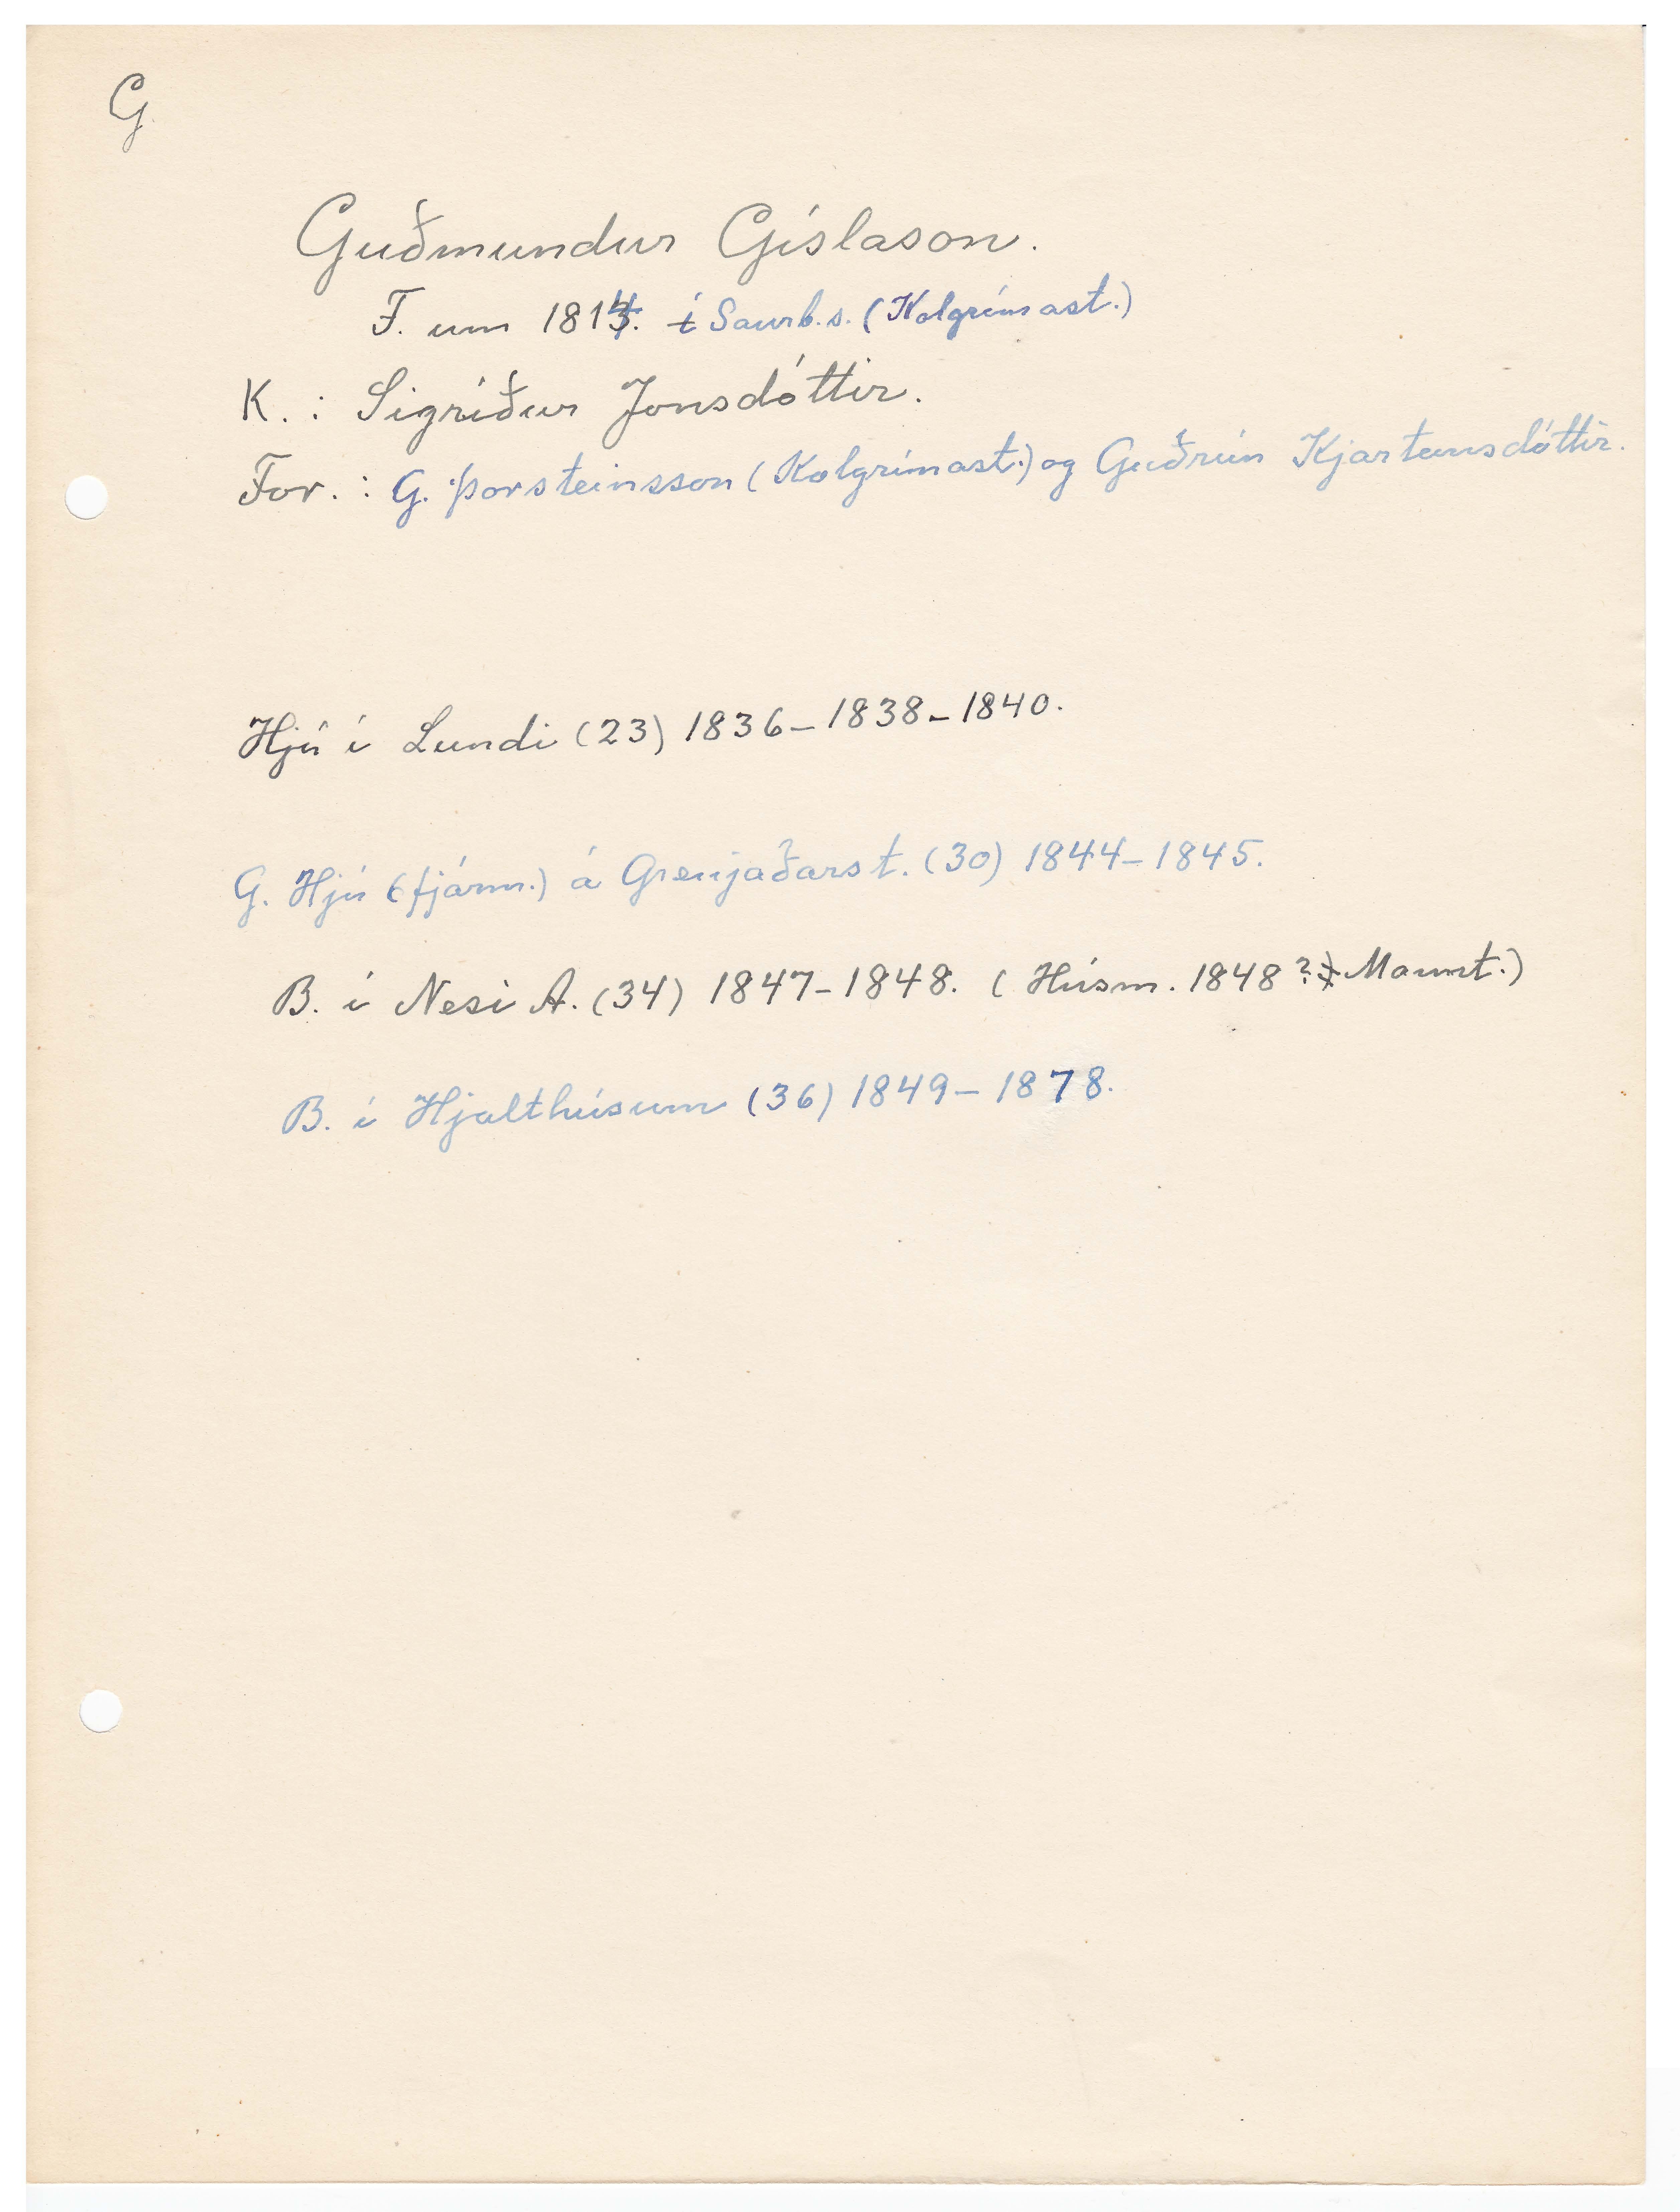 G
Guðmundur Gíslason.
F. um 1814. í Saurb.s. (Kolgrímast.)
K. : Sigríður Jónsdóttir.
For. : G. Þorsteinsson (Kolgrímast.) og Guðrún Kjartansdóttir.
Hjú í Lundi (23) 1836-1838-1840.
G. Hjú (fjárm.) á Grenjaðarst. (30) 1844-1845.
B. í Nesi A. (34) 1847-1848. (Húsm. 1848? Mannt.)
B. í Hjalthúsum (36) 1849-1878.